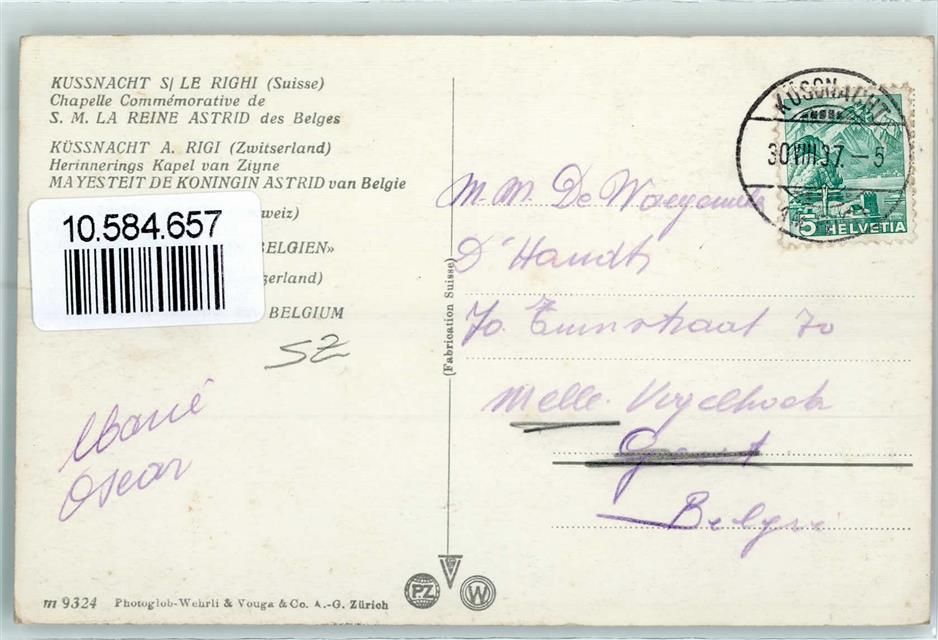 KUSSNACHT S/ LE RIGHI (Suisse)
Chapelle Commémorative de
S. M. LA REINE ASTRID des Belges
KÜSSNACHT A. RIGI (Zwitserland)
Herinnerings Kapel van Ziyne
MAYESTEIT DE KONINGIN ASTRID van Belgie
weiz)
BELGIEN»
zerland)
BELGIUM
10.584.657
SZ
Marie
Oscar
(Fabrication Suisse)
KÜSSNACHT
30 VIII 37. - 5
5 HELVETIA
M. M. De
D'Hondt
70
Melle Vogelhoek
Gent
Belgie
PZ
V
W
m 9324 Photoglob-Wehrli & Vouga & Co. A.-G. Zürich